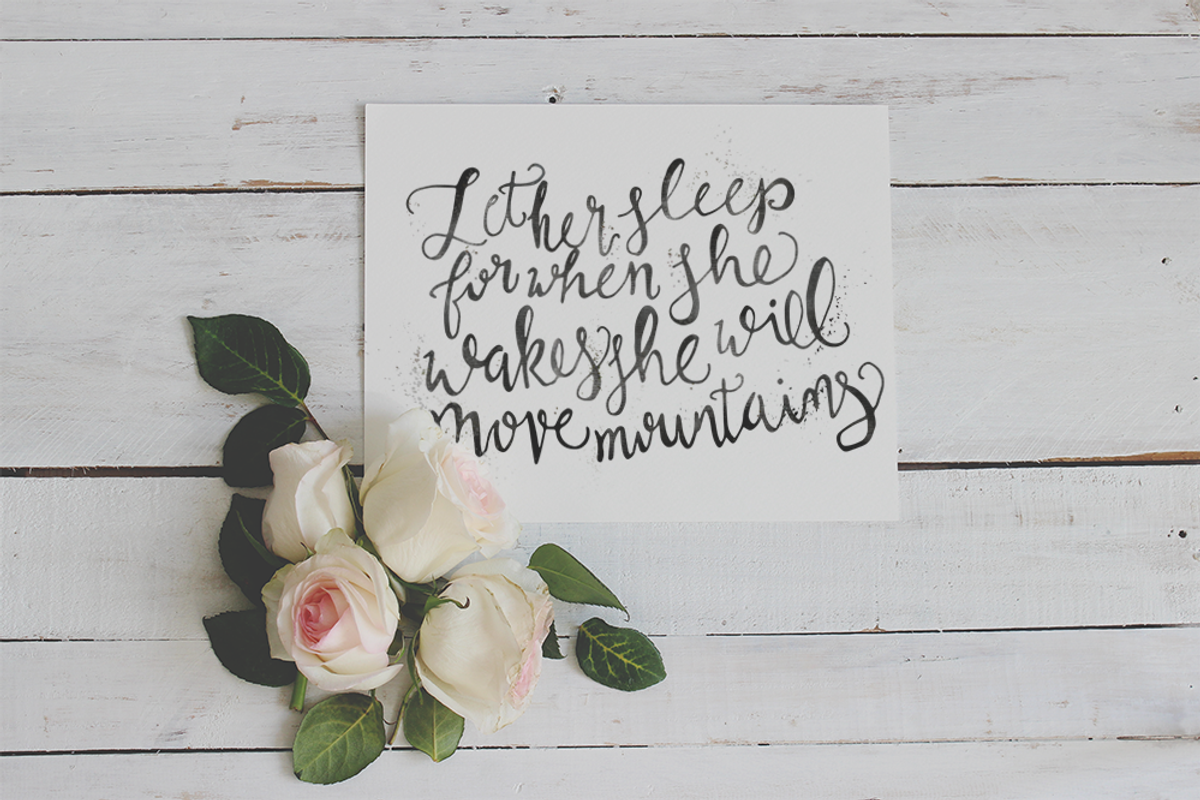 Let her sleep
for when she
wakes she will
move mountains